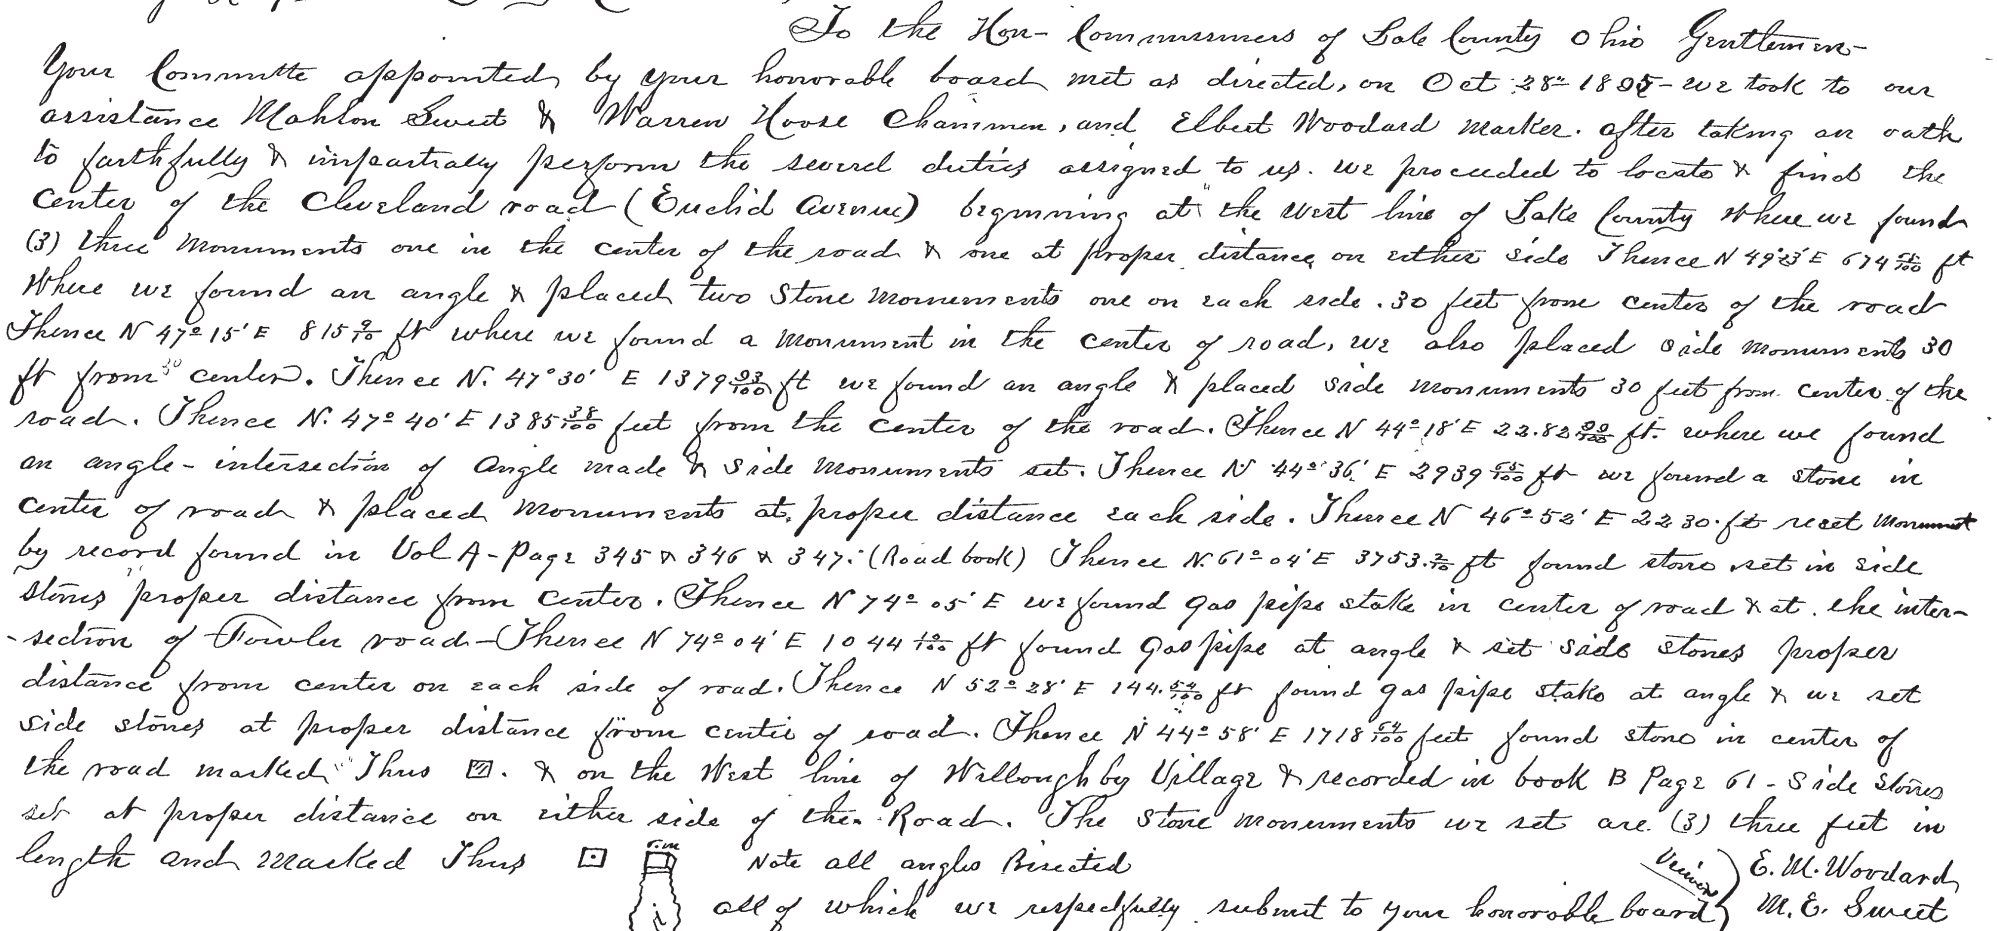 To the Hon- Commissioners of Lake County Ohio Gentlemen-
Your Committe appointed by your honorable board met as directed, on Oct 28" 1895 - we took to our
assistance Mahlon Sweet & Warren Hoose Chainmen, and Elbert Woodard Marker. after taking an oath
to faithfully & impartially perform the several duties assigned to us. we proceeded to locate & find the
Center of the Cleveland road (Euclid Avenue) beginning at the West line of Lake County where we found
(3) three monuments one in the center of the road & one at proper distance on either side Thence N 49° 23' E 674 ft
Where we found an angle & placed two Stone Monuments one on each side. 30 feet from center of the road
Thence N 47° 15' E 815 9/10 ft where we found a monument in the center of road, we also placed side monuments 30
ft from center. Thence N. 47° 30' E 1379 93/100 ft we found an angle & placed side monuments 30 feet from center of the
road. Thence N. 47° 40' E 1385 38/100 feet from the center of the road. Thence N 44° 18' E 22.82 90/100 ft. where we found
an angle - intersection of angle made & side monuments set. Thence N 44° 36' E 2939 65/100 ft we found a stone in
center of road & placed monuments at proper distance each side. Thence N 46° 52' E 2230. ft reset monument
by record found in Vol A - Page 345 & 346 & 347. (Road book) Thence N. 61° 04' E 3753. 2/10 ft found stone set in side
stones proper distance from center. Thence N 74° 05' E we found gas pipe stake in center of road & at the inter-
-section of Fowler road - Thence N 74° 04' E 1044 10/100 ft found gas pipe at angle & set side stones proper
distance from center on each side of road. Thence N 52° 28' E 144. 54/100 ft found gas pipe stake at angle & we set
side stones at proper distance from center of road. Thence N 44° 58' E 1718 64/100 feet found stone in center of
the road marked Thus . & on the West line of Willoughby Village & recorded in book B Page 61 - Side stones
set at proper distance on either side of the Road. The Stone monuments we set are (3) three feet in
length and Marked Thus 6 in Note all angles Bisected Viewers E. M. Woodard
all of which we respectfully submit to your honorable board M. E. Sweet